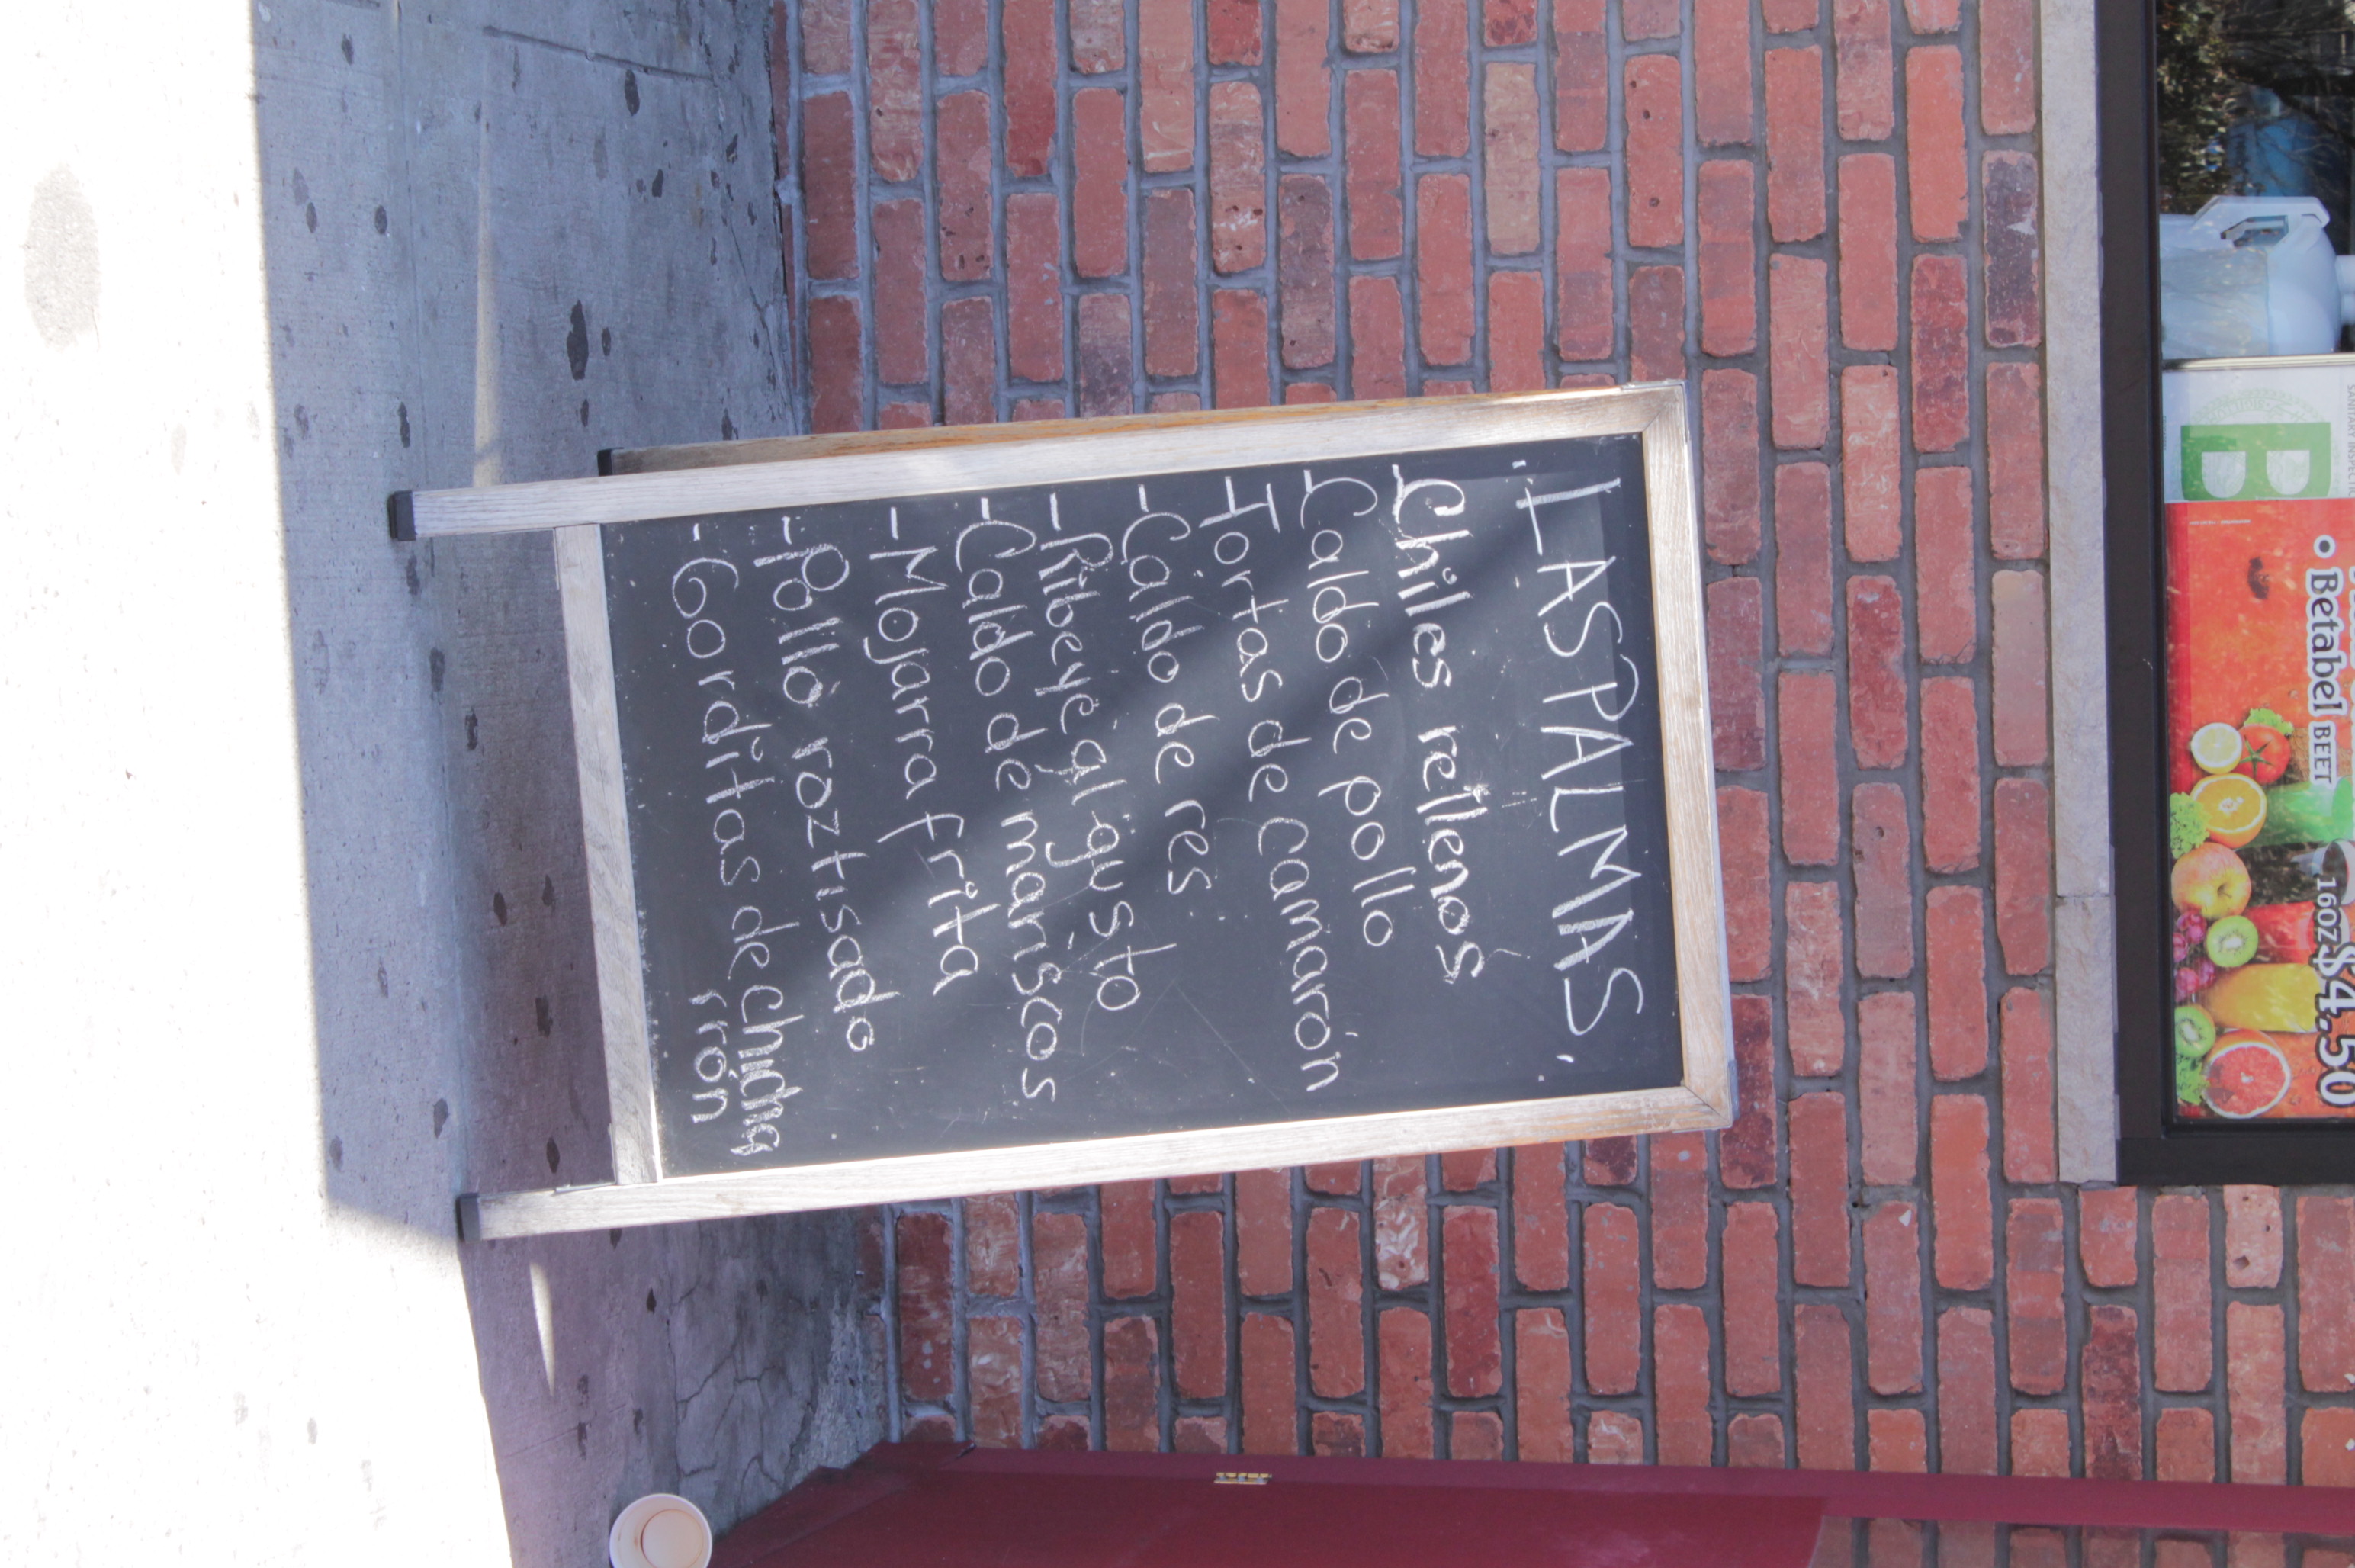 SANITARY INSPECTIO
B
• Betabel BEET
16OZ $4.50
LAS PALMAS.
-Chiles rellenos
-Caldo de pollo
-Tortas de camarón
-Caldo de res
-Ribeye al gusto
-Caldo de mariscos
-Mojarra frita
-Pollo roztisado
-Gorditas de chicha
rrón